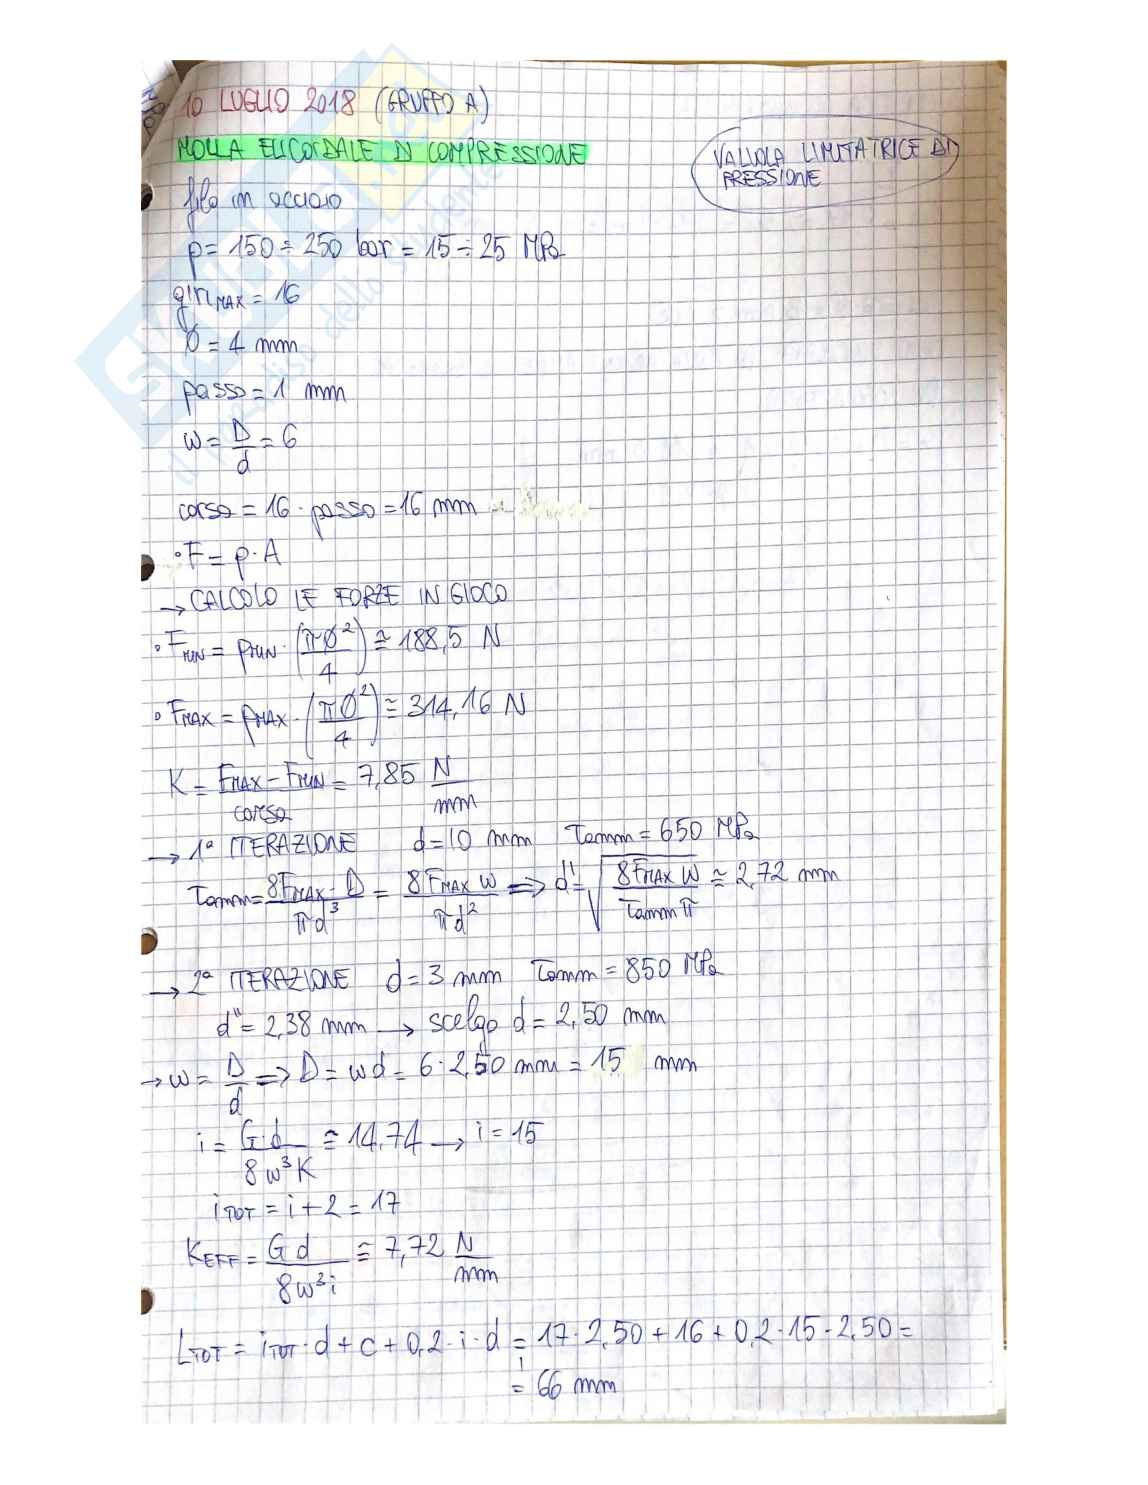 10 LUGLIO 2018 (GRUPPO A)
MOLLA ELICOIDALE DI COMPRESSIONE
VALVOLA LIMITATRICE DI
PRESSIONE
filo in acciaio
p = 150 ÷ 250 bar = 15 ÷ 25 MPa
giri MAX = 16
Ø = 4 mm
passo = 1 mm
w = D/d = 6
corsa = 16 · passo = 16 mm
• F = p · A
→ CALCOLO LE FORZE IN GIOCO
• F MIN = p MIN · (πØ²/4) ≅ 188,5 N
• F MAX = p MAX · (πØ²/4) ≅ 314,16 N
K = (F MAX − F MIN)/corsa = 7,85 N/mm
→ 1ª ITERAZIONE d = 10 mm τamm = 650 MPa
τamm = 8 F MAX · D/πd³ = 8 F MAX w/πd² => d' = √(8 F MAX w/τamm π) ≅ 2,72 mm
→ 2ª ITERAZIONE d = 3 mm τamm = 850 MPa
d" = 2,38 mm → scelgo d = 2,50 mm
→ w = D/d => D = wd = 6 · 2,50 mm = 15 mm
i = G d/8w³K ≅ 14,74 → i = 15
i TOT = i + 2 = 17
K EFF = G d/8w³i ≅ 7,72 N/mm
L TOT = i TOT · d + c + 0,2 · i · d = 17 · 2,50 + 16 + 0,2 · 15 · 2,50 =
= 66 mm